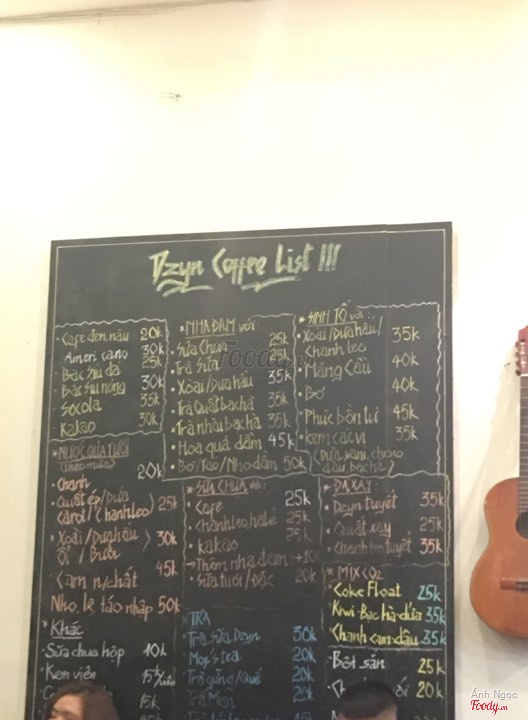 Dzyn Coffee List !!!
Cafe đen, nâu 20k
Americano 30k
Bạc sỉu đá 25k
Bạc sỉu nóng 30k
Socola 35k
Kakao 30k
* NƯỚC QUẢ TƯƠI
(theo mùa)
Chanh 20k
Quất ép/Dứa
carot/chanh leo) 25k
Xoài/Dưa hấu
ổi/Bưởi 30k
Cam n/chất 45k
Nho, lê táo nhập 50k
* Khác
Sữa chua hộp 10k
Kem viên 15k/viên
15k
* NHA ĐAM với:
Sữa Chua 25k
Trà Sữa 25k
Xoài/Dưa hấu 35k
Trà Quất bạc hà 35k
Trà nhài bạc hà 35k
Hoa quả dầm 45k
Bơ/Táo/Nho dầm 50k
* SỮA CHUA với:
Cafe 25k
Chanh leo hạt é 25k
Kakao 25k
→ Thêm nha đam: +10k
Sữa tươi/Đặc 20k
* TRÀ
Trà sữa Dzyn 30k
Moji's trà 20k
Trà gừng/quế 20k
Trà Mận 20k
* SINH TỐ với:
Xoài/Dưa hấu/
Chanh leo 35k
Mãng Cầu 40k
Bơ 40k
Phúc bồn tử 45k
kem các vị 35k
(Dừa, vani, choco
dâu, bạc hà)
* ĐÁ XAY:
Dzyn tuyết 35k
Quất xay 25k
Chanh leo tuyết 35k
* MIX CO2
Coke Float 25k
Kiwi-Bạc hà-dứa 35k
Chanh cam-dâu 35k
Bột sắn 25k
20k
Ánh Ngọc
Foody.vn